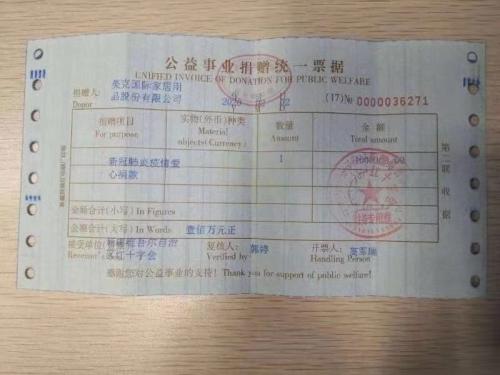 公益事业捐赠统一票据
UNIFIED INVOICE OF DONATION FOR PUBLIC WELFARE
捐赠人: 美克国际家居用品股份有限公司
Donor 2020 02 (17)№ 0000036271
捐赠项目 实物(外币)种类 数量 金额
For purpose Material objects(Currency) Amount Total amount
新冠肺炎疫情爱心捐款 1 1000000.00
金额合计(小写) In Figures
金额合计(大写) In Words 壹佰万元正
接受单位 维吾尔自治区红十字会 复核人: 郭婷 开票人:
Receiver's Verified by Handling Person
感谢您对公益事业的支持! Thank you for support of public welfare!
第二联 收据